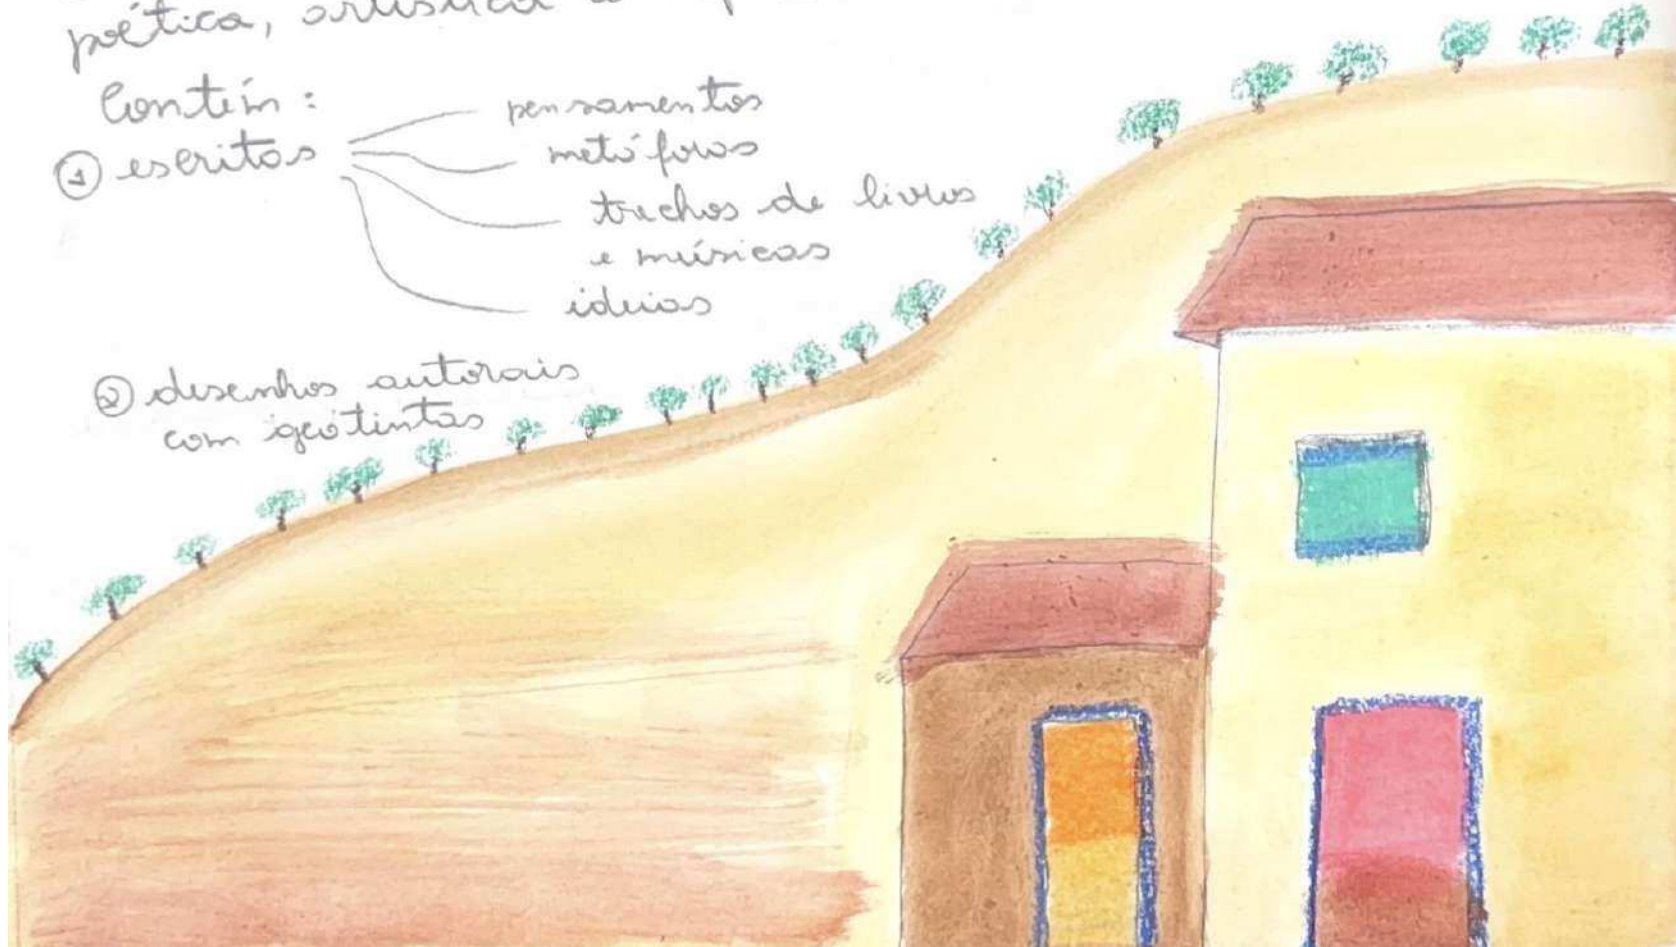 poética, artística
Contém:
① escritos
pensamentos
metáforas
trechos de livros
e músicas
ideias
② desenhos autorais
com geotintas